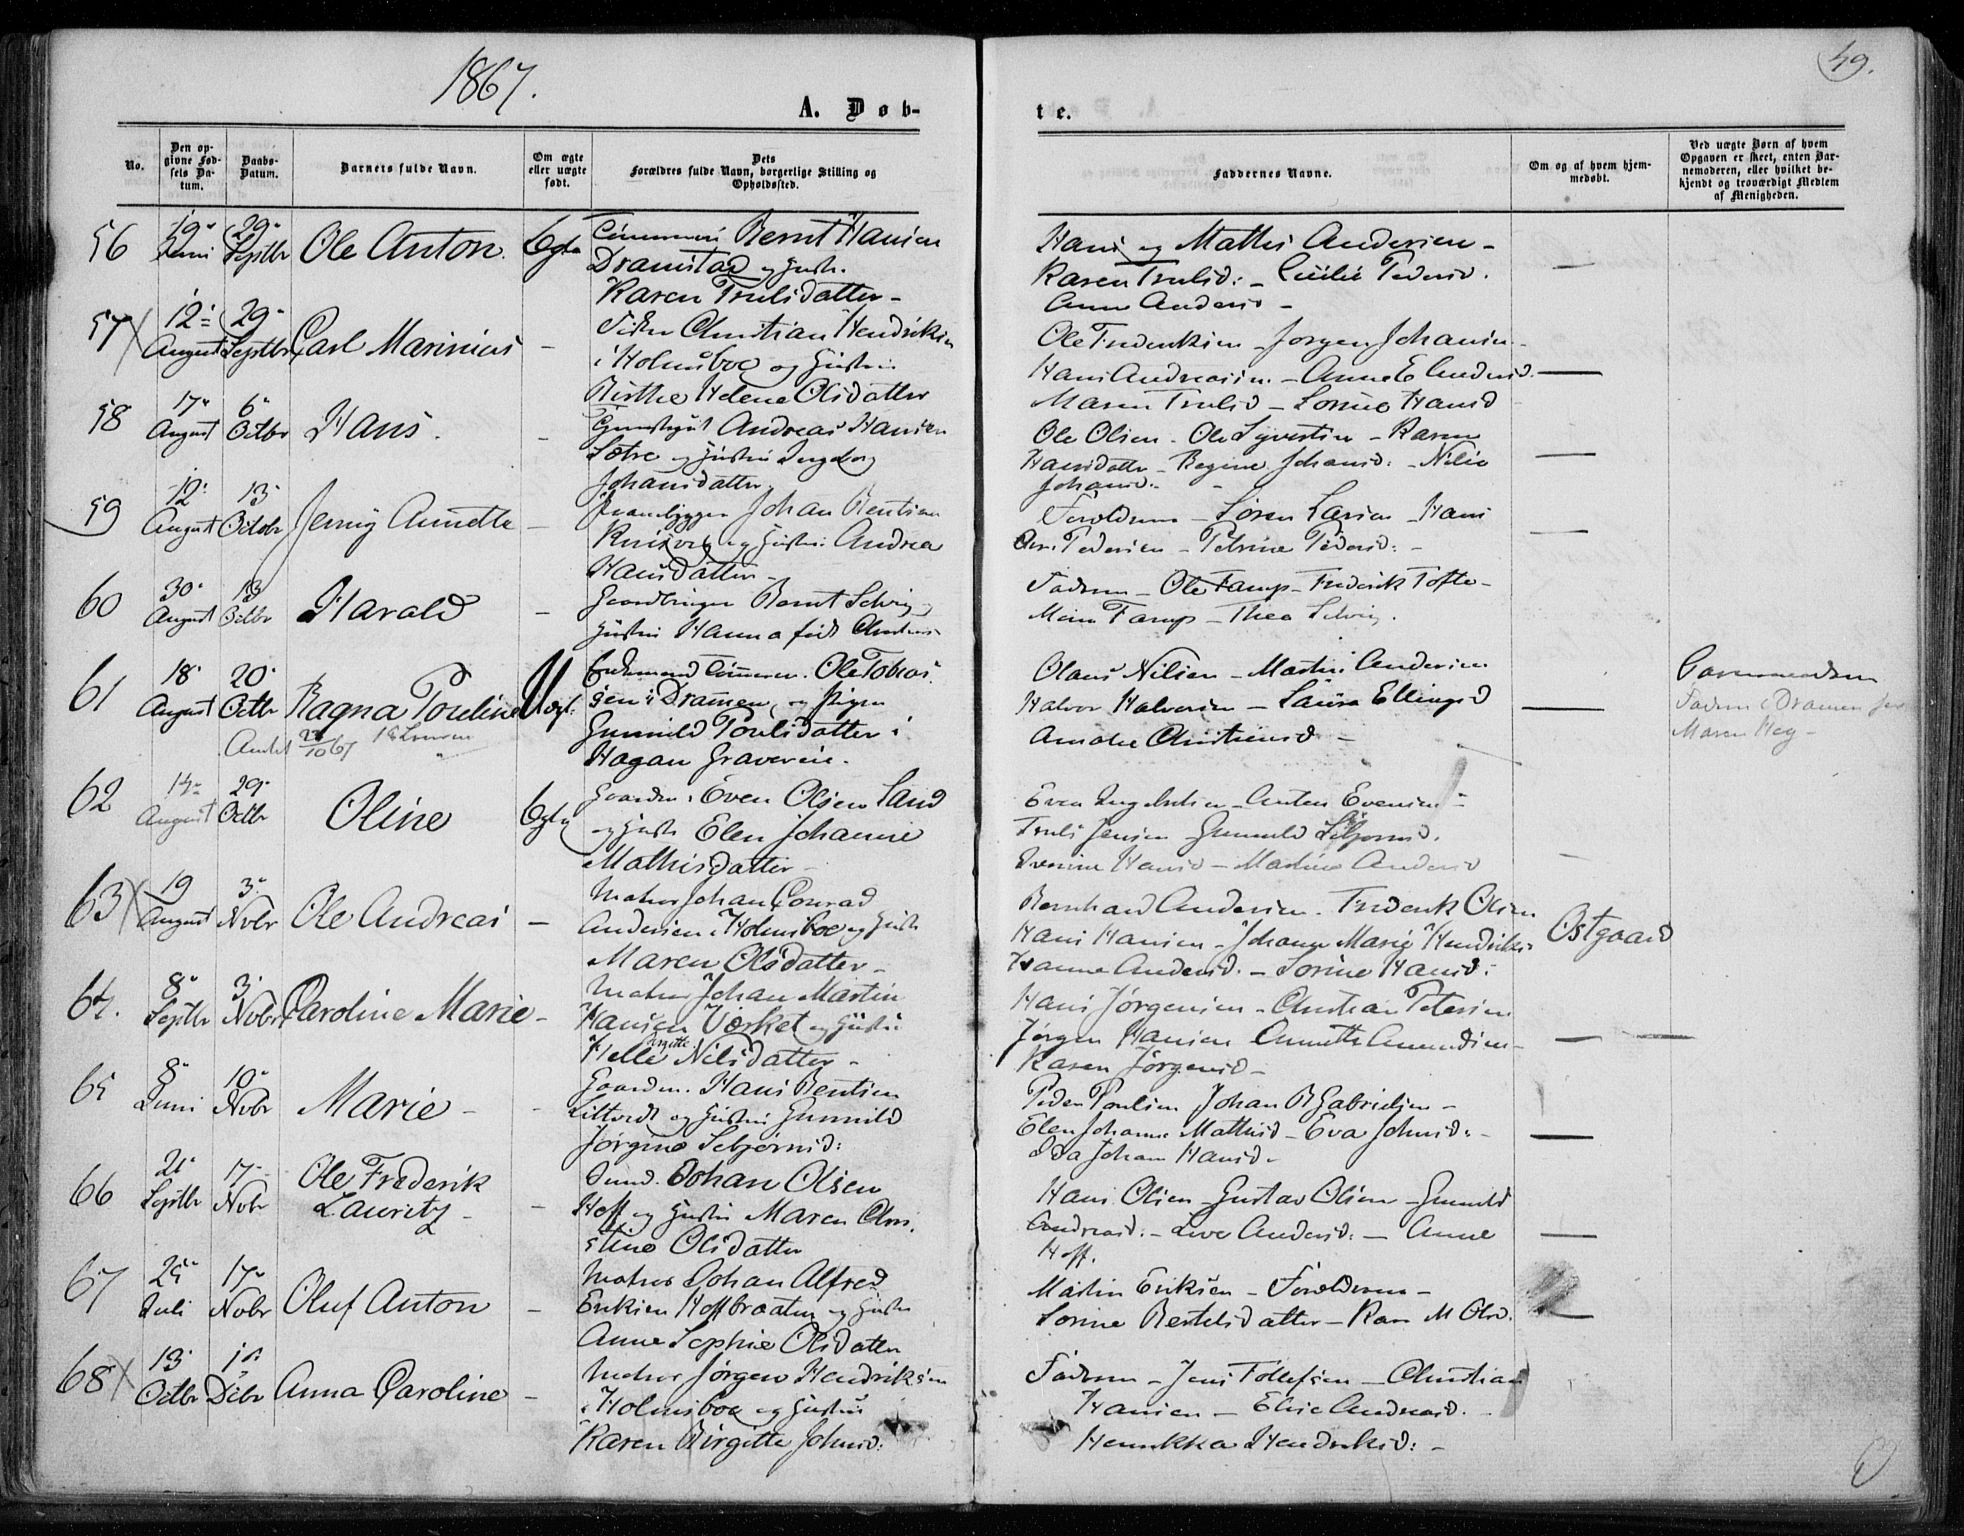 1867.
49.
A. Døb-
te.
No.
Den opgivne Fødsels Datum.
Daabs-Datum.
Barnets fulde Navn.
Om ægte eller uægte født.
Dets Forældres fulde Navn, borgerlige Stilling og Opholdssted.
Faddernes Navne.
Om og af hvem hjemmedøbt.
Ved uægte Børn af hvem Opgaven er skeet, enten Barnemoderen, eller hvilket bekjendt og troværdigt Medlem af Menigheden.
56 19 Juni 29 Septbr Ole Anton. Ægte
Bernt Hansen
Dramstad og Hustr.
Karen Trulsdatter -
Hans og Mathis Andersen -
Karen Trulsd: - Cecilie Pedersd.
Anne Andersd -
57 12 August 29 Septbr Carl Marinius -
Christian Hendriksen
i Holmsboe og Hustru
Birthe Helene Olsdatter
Ole Frederiksen - Jørgen Johansen -
Hans Andreassen. - Anne E Andersd. —
Maren Trulsd - Lorine Hansd
58 17 August 6 Octbr Hans. -
Andreas Hansen
Sætre og Hustru Ingeborg
Johansdatter
Ole Olsen - Ole Syvertsen - Karen
Hansdatter - Regine Johansd: - Nilie —
Johansd: -
59 12 August 13 Octobr Jenny Annette -
Johan Bentsen
og Hustru: Andrea
Hansdatter -
Forældrene - Søren Larsen - Hans —
Pedersen - Petrine Pedersd: -
60 30 August 13 Octbr Harald -
Gaardbruger Bernt Selvig og
Hustru Hanna født
Faderen - Ole Famp - Frederik Tofte -
Famp - Thea Selvig.
61 18 August 20 Octbr Ragna Pouline Uægt.
Enkemand Ole Tobias-
sen i Drammen, og Pigen
Gunnild Poulsdatter i
Hagan Graverin.
Olaus Nilsen - Martin Andersen
Halvor Halvorsen - Laura Ellingsd —
Amalie Christensd -
Barnemoderen
Faderen i Dramen
Maren Hey -
62 14 August 29 Octbr Oline Ægte
Gaardm. Even Olsen Sand
og Hustr Elen Johanne
Mathisdatter -
Even Engebretsen - Anton Evensen -
Truls Jensen - Gunnild
Hansd - Martine Andersd
63 19 August 3 Novbr Ole Andreas -
Matros Johan Conrad
Andersen i Holmsboe og Hustr
Maren Olsdatter -
Bernhard Andersen. Frederik Olsen
Hans Hansen - Johanne Marie Hendriks-
Hanne Andersd. - Lorine Hansd:
Østgaard
64. 8 Septbr 3 Novbr Caroline Marie -
Matros Johan Martin
Hansen Værket og Hustru
Helle Birgitte Nilsdatter -
Hans Jørgensen - Christian Petersen
Jørgen Hansen Annette Amundsen - —
Karen Jørgensd -
65 8 Juni 10 Novbr Marie - -
Gaardm. Hans Bentsen
og Hustru Gunnild
Jørgine
Peder Poulsen Johan B Gabrielsen -
Elen Johanne Mathisd - Eva Johnsd: - —
Johan Hansd -
66 21 Septbr 17 Novbr Ole Frederik Lauritz - -
Johan Olsen
Hoff og Hustru Maren Chri-
stine Olsdatter
Hans Olsen - Gustav Olsen - Gunnild
Andreasd: - Live Andersd: - Anne —
Hoff.
67 25 Juli 17 Novbr Oluf Anton -
Matros Johan Alfred
Eriksen Hoffbraaten og Hustr
Anne Sophie Olsdatter
Martin Eriksen - Forældrene -
Lorine Bertelsdatter - Karen M Olsd. —
68 13 Octbr 1st Dcbr Anna Caroline -
Matros Jørgen Hendriksen
i Holmsboe og Hustru
Karen Birgitte Johnsd:
Faderen - Jens Tollefsen - Christian
Hansen - Elise Andreasd. -
Henrikka Hendriksd: -